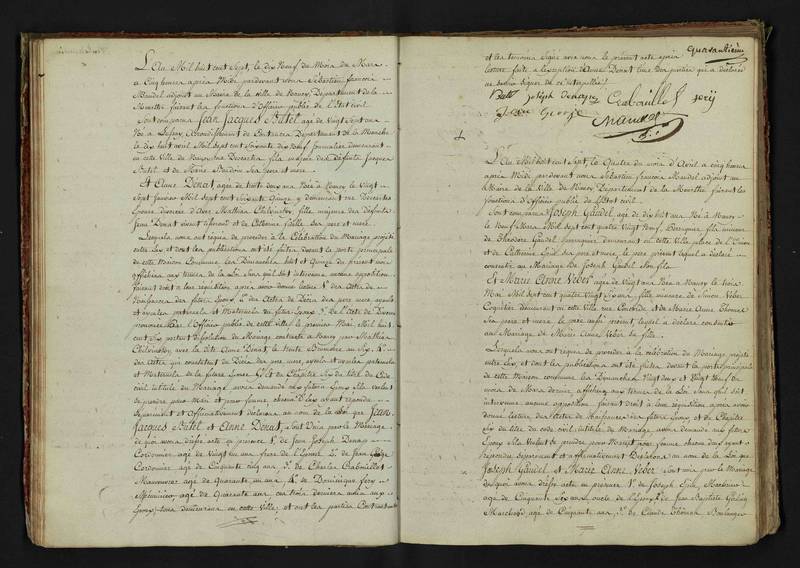 L'An Mil huit cent Sept, le dix Neuf du Mois de Mars
a Cinq heures après Midi pardevant nous Sébastien françois
Mandel adjoint au Maire de la ville de Nancy Departement de la
Meurthe faisant les fonctions d'Officier public de l'Etat civil
Sont comparus Jean Jacques Butel age de Vingt Sept ans
Né a Arrondissement de Departement de la Manche
le dix huit avril Mil Sept cent Soixante dix Neuf Journalier demeurant
en cette Ville de Nancy fils majeur des défunts Jacques
Butel et de Marie ses pere et mere
Et Anne Denat agée de trente deux ans Née a Nancy le Vingt
Sept Janvier Mil Sept cent Soixante Quinze y demeurant rue
Epouse divorcée d'avec Mathias fille majeure des défunts
Jean Denat vivant et de Catherine ses pere et mere
Lesquels nous ont requis de proceder à la Célébration du Mariage projetté
entre Eux et dont les publications ont été faites devant la porte principale
de cette Maison Commune les Dimanches huit et Quinze du présent mois
affichées aux termes de la Loi Sans qu'il soit intervenu aucune opposition
faisant droit a leur requisition apres avoir donné lecture 1.º des actes de
Naissances des futurs Epoux 2.º des Actes de Décès des pere mere ayeuls
et ayeules paternels et Maternels du futur Epoux 3.º de l'Acte de Divorce
prononcé par l'Officier public de cette Ville le premier Mai Mil huit
cent Six portant dissolution du Mariage contracté a Nancy par Mathias
avec la dite Anne Denat le trente Brumaire an Six 4.º
des Actes qui constatent le Décès des pere mere, ayeuls et ayeules paternels
et Maternels de la future Epouse Et du Chapitre Six du titre du Code
civil intitulé du Mariage avons demandé aux futurs Epoux s'ils veulent
se prendre pour Mari et pour femme chacun d'Eux ayant répondu
Séparément et Affirmativement declarons au nom de la Loi que Jean
Jacques Butel et Anne Denat, sont Unis par le Mariage
de quoi avons dressé acte en présence 1.º de Jean Joseph Denay
Cordonnier agé de Vingt un ans frere de l'Epouse 2.º de Jean
Cordonnier agé de Cinquante cinq ans 3.º de Charles Crabouillet
Manoeuvre agé de Quarante un ans 4.º de Dominique Jery
agé de Quarante ans ces trois derniers amis aux
Epoux tous demeurans en cette Ville; et ont les parties Contractantes
quarantième
et les temoins Signé avec nous le présent acte après
lecture faite a l'exception d'Anne Denat l'une des parties qui a déclaré
ne savoir signer de ce interpellée
Butel Joseph Denay Crabouillet Jery
Jean George
Mandel
L'An Mil huit cent Sept, le Quatre du mois d'Avril a cinq heures
après Midi pardevant nous Sébastien François Mandel adjoint au
Maire de la Ville de Nancy Departement de la Meurthe faisant les
fonctions d'Officier public de l'Etat civil.
Sont comparus Joseph Gaudel, age de dix huit ans Né a Nancy
le Neuf Mars Mil Sept cent Quatre Vingt Neuf, fils mineur
de Theodore Gaudel demeurant en cette Ville place de l'Union
et de Catherine ses pere et mere, le pere présent lequel a déclaré
consentir au Mariage de Joseph Gaudel Son fils
Et Marie Anne Veber agée de Vingt ans Née a Nancy le trois
Mai Mil Sept cent quatre Vingt Six, fille mineure de Simon Veber
Coquetier demeurant en cette Ville rue et de Marie Anne Thomas
Ses pere et mere le pere aussi present, lequel a déclaré consentir
au Mariage de Marie Anne Veber Sa fille.
Lesquels nous ont requis de proceder à la célébration du Mariage projetté
entre Eux, et dont les publications ont été faites devant la porte principale
de cette Maison commune les Dimanches Vingt deux et Vingt Neuf du
mois de Mars dernier affichées aux termes de la Loi Sans qu'il soit
intervenu aucune opposition faisant droit à leur requisition après avoir
donné lecture des Actes de Naissances des futurs Epoux et du Chapitre
Six du titre du code civil intitulé du Mariage avons demandé aux futurs
Epoux s'ils Veulent Se prendre pour Mari et pour femme chacun d'eux ayant
répondu séparément et affirmativement Declarons au nom de la Loi que
Joseph Gaudel et Marie Anne Veber Sont unis par le Mariage
de quoi avons dressé acte en présence 1.º de Joseph
agé de Cinquante Six ans oncle de l'Epoux 2.º de Jean Baptiste
Marchand agé de Cinquante ans, 3.º de Claude Boulanger